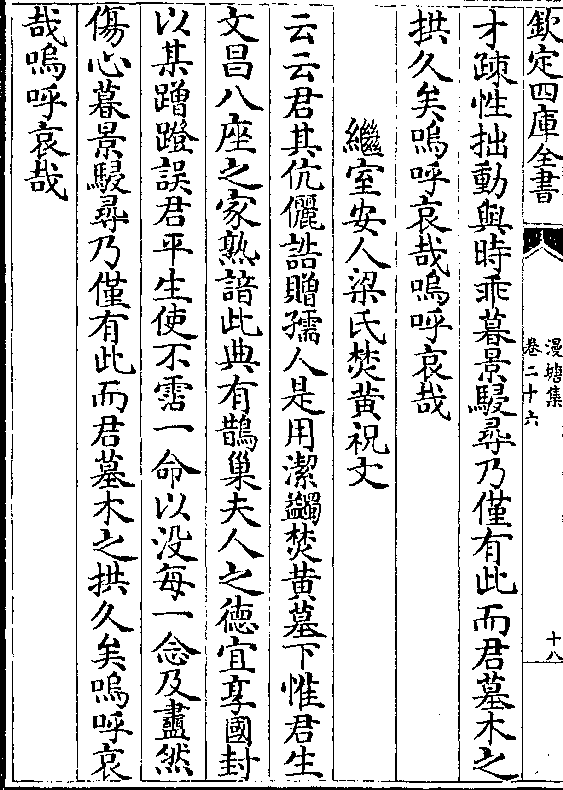 欽定四庫全書
漫塘集
卷二十六
十八
才疎性拙動與時乖暮景駸尋乃僅有此而君墓木之
拱久矣嗚呼哀哉嗚呼哀哉
繼室安人梁氏焚黄祝文
云云君其伉儷誥贈孺人是用潔蠲焚黄墓下惟君生
文昌八座之家熟諳此典有鵲巢夫人之德宜享國封
以某蹭蹬誤君平生使不霑一命以没每一念及盡然
傷心暮景駸尋乃僅有此而君墓木之拱久矣嗚呼哀
哉嗚呼哀哉